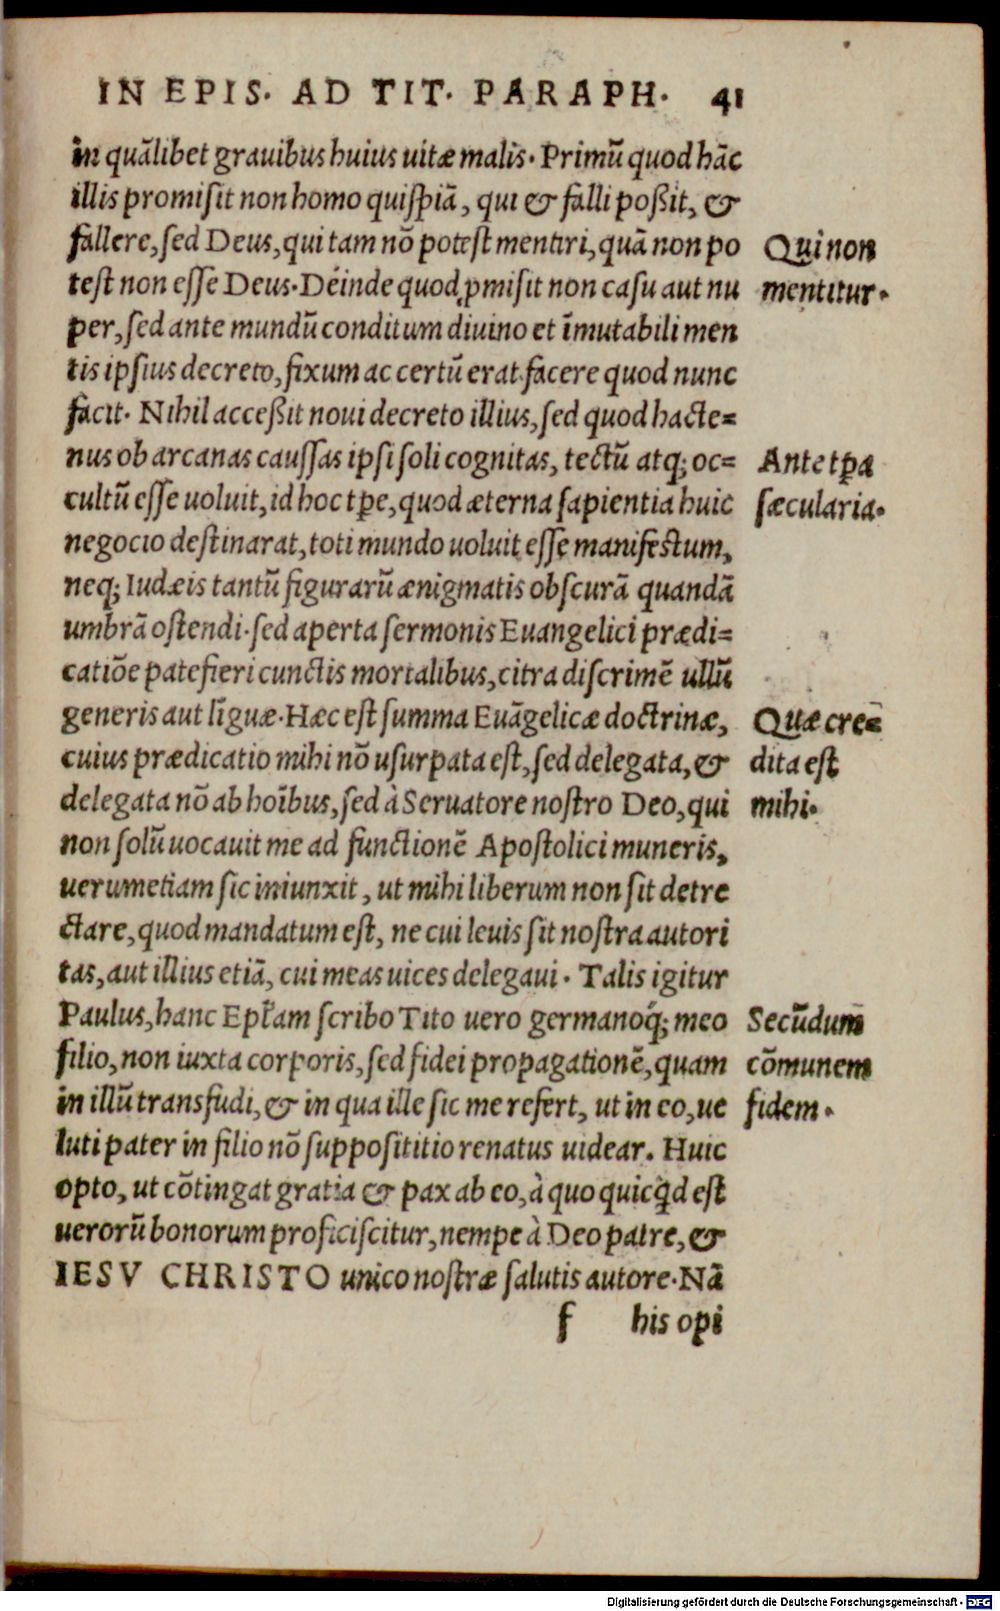 IN EPIS. AD TIT. PARAPH. 41
in quālibet grauibus huius uitæ malis. Primū quod hāc
illis promisit non homo quispiā, qui & falli poßit, &
fallere, sed Deus, qui tam nō potest mentiri, quā non po
test non esse Deus. Deinde quod ꝓmisit non casu aut nu
per, sed ante mundū conditum diuino et īmutabili men
tis ipsius decreto, fixum ac certū erat facere quod nunc
facit. Nihil acceßit noui decreto illius, sed quod hacte=
nus ob arcanas caussas ipsi soli cognitas, tectū atq; oc=
cultū esse uoluit, id hoc tꝑe, quod æterna sapientia huic
negocio destinarat, toti mundo uoluit esse manifestum,
neq; Iudæis tantū figurarū ænigmatis obscurā quandā
umbrā ostendi. sed aperta sermonis Euangelici prædi=
catiōe patefieri cunctis mortalibus, citra discrimē ullū
generis aut līguæ. Hæc est summa Euāgelicæ doctrinæ,
cuius prædicatio mihi nō usurpata est, sed delegata, &
delegata nō ab hoībus, sed à Seruatore nostro Deo, qui
non solū uocauit me ad functionē Apostolici muneris,
uerumetiam sic iniunxit, ut mihi liberum non sit detre
ctare, quod mandatum est, ne cui leuis sit nostra autori
tas, aut illius etiā, cui meas uices delegaui. Talis igitur
Paulus, hanc Epꝉam scribo Tito uero germanoq́; meo
filio, non iuxta corporis, sed fidei propagationē, quam
in illū transfudi, & in qua ille sic me refert, ut in eo, ue
luti pater in filio nō supposititio renatus uidear. Huic
opto, ut cōtingat gratia & pax ab eo, à quo quicq̇d est
uerorū bonorum proficiscitur, nempe à Deo patre, &
IESV CHRISTO unico nostræ salutis autore. Nā
f his opi
Qui non
mentitur.
Ante tꝑa
sæcularia.
Quæ cre=
dita est
mihi.
Secūdum
cōmunem
fidem.
Digitalisierung gefördert durch die Deutsche Forschungsgemeinschaft - DFG